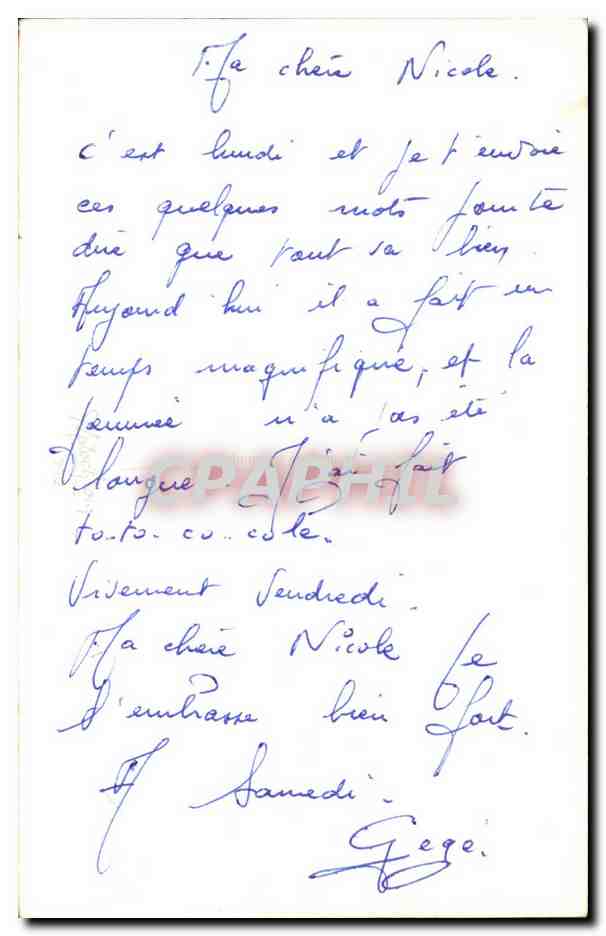 Ma chère Nicole.
C'est lundi et je t'envoie
ces quelques mots pour te
dire que tout va bien.
Aujourd'hui il a fait un
temps magnifique, et la
journée n'a pas été
longue. J'ai fait
to-to-co-cole.
Vivement Vendredi.
Ma chère Nicole je
t'embrasse bien fort.
A Samedi.
Gégé.
CPAPHIL